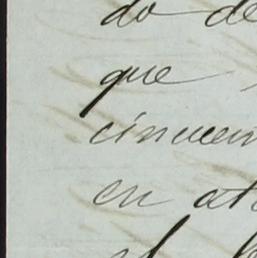 do de
que
cincuen
en at
el